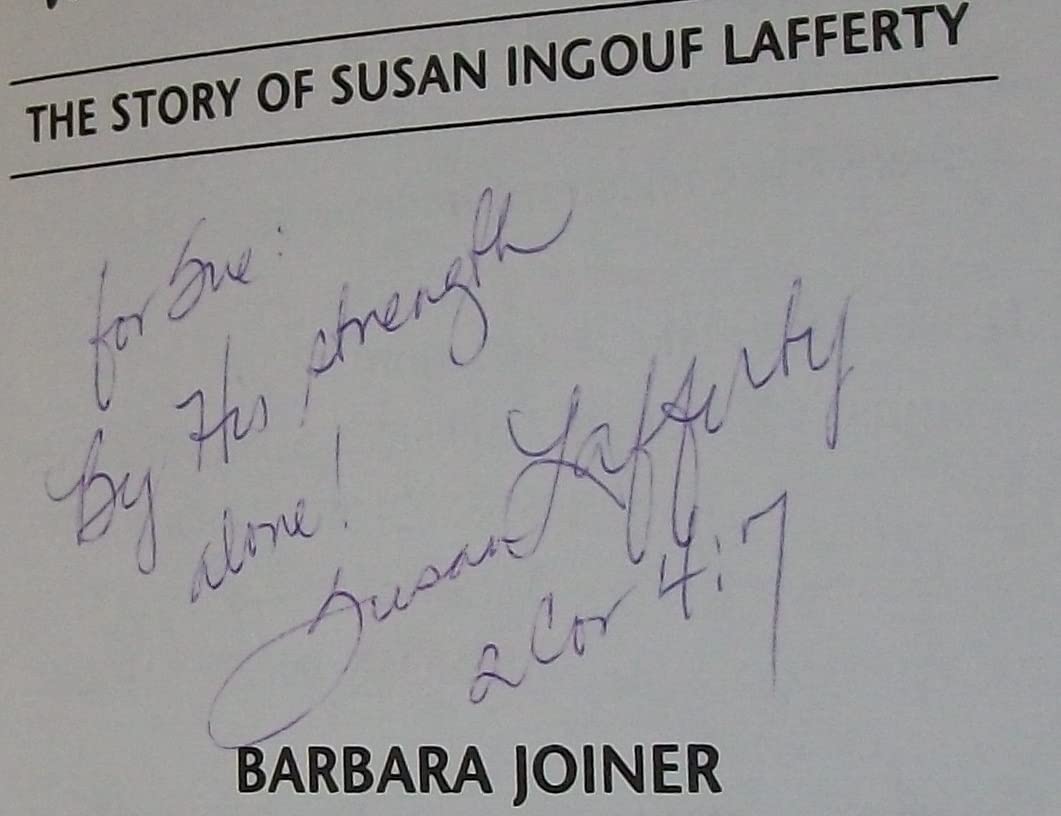 THE STORY OF SUSAN INGOUF LAFFERTY
for Sue:
By His strength
alone!
Susan Lafferty
2 Cor 4:7
BARBARA JOINER